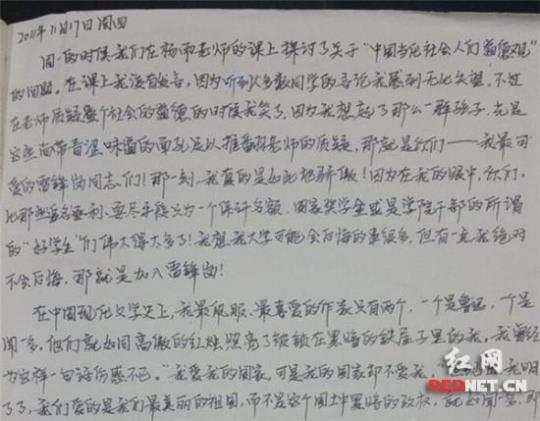 2011年11月17日 周四
周一的时候我们在杨雨老师的课上探讨了关于“中国当代社会人们道德观”
的问题。在课上我没有发言，因为听到大多数同学的言论我感到无比失望。不过
在老师质疑整个社会的道德的时候我笑了，因为我想起了那么一群孩子，光是
这些尚带青涩味道的面孔足以推翻杨老师的质疑，那就是你们——我最可
爱的雷锋岗同志们！那一刻，我真的是如此地骄傲！因为在我的眼中，你们
比那些争名夺利、耍尽手段只为一个保研名额、国家奖学金或是学院干部的所谓
的“好学生”们伟大得太多了！我想我大学可能会后悔的事很多，但有一点我绝对
不会后悔，那就是加入雷锋岗！
在中国现代文学史上，我最佩服、最喜爱的作家只有两个，一个是鲁迅，一个是
闻一多，他们就如同高傲的红烛照亮了被锁在黑暗的铁屋子里的我。我曾经
为这样一句话伤感不已。“我爱我的国家，可是我的国家却不爱我。”
我明
了了，我们爱的是我们最美丽的祖国，而不是这个国土中黑暗的政权，就如闻一多，那
红网
REDNET.CN